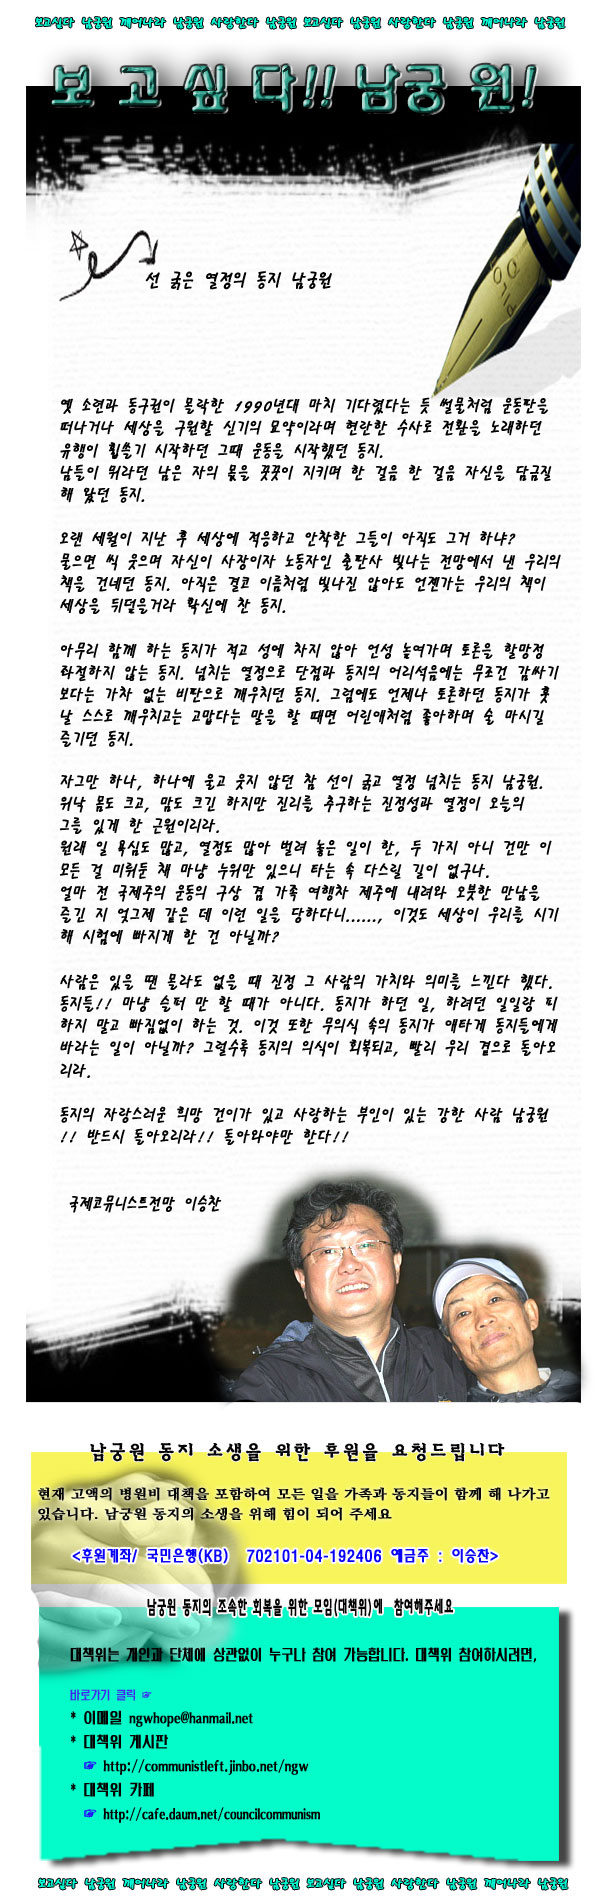 보고싶다 남궁원 깨어나라 남궁원 사랑한다 남궁원 보고싶다 남궁원 사랑한다 남궁원 깨어나라 남궁원
보 고 싶 다!! 남궁 원!
선 굵은 열정의 동지 남궁원
옛 소련과 동구권이 몰락한 1990년대 마치 기다렸다는 듯 썰물처럼 운동판을
떠나거나 세상을 구원할 신기의 묘약이라며 현란한 수사로 전환을 노래하던
유행이 휩쓸기 시작하던 그때 운동을 시작했던 동지.
남들이 뭐라던 남은 자의 몫을 꿋꿋이 지키며 한 걸음 한 걸음 자신을 담금질
해 왔던 동지.
오랜 세월이 지난 후 세상에 적응하고 안착한 그들이 아직도 그거 하냐?
물으면 씩 웃으며 자신이 사장이자 노동자인 출판사 빛나는 전망에서 낸 우리의
책을 건네던 동지. 아직은 결코 이름처럼 빛나진 않아도 언젠가는 우리의 책이
세상을 뒤덮을거라 확신에 찬 동지.
아무리 함께 하는 동지가 적고 성에 차지 않아 언성 높여가며 토론을 할망정
좌절하지 않는 동지. 넘치는 열정으로 단점과 동지의 어리석음에는 무조건 감싸기
보다는 가차 없는 비판으로 깨우치던 동지. 그럼에도 언제나 토론하던 동지가 훗
날 스스로 깨우치고는 고맙다는 말을 할 때면 어린애처럼 좋아하며 술 마시길
즐기던 동지.
자그만 하나, 하나에 울고 웃지 않던 참 선이 굵고 열정 넘치는 동지 남궁원.
워낙 몸도 크고, 맘도 크긴 하지만 진리를 추구하는 진정성과 열정이 오늘의
그를 있게 한 근원이리라.
원래 일 욕심도 많고, 열정도 많아 벌려 놓은 일이 한, 두 가지 아니 건만 이
모든 걸 미뤄둔 채 마냥 누워만 있으니 타는 속 다스릴 길이 없구나.
얼마 전 국제주의 운동의 구상 겸 가족 여행차 제주에 내려와 오붓한 만남을
즐긴 지 엊그제 같은 데 이런 일을 당하다니......, 이것도 세상이 우리를 시기
해 시험에 빠지게 한 건 아닐까?
사람은 있을 땐 몰라도 없을 때 진정 그 사람의 가치와 의미를 느낀다 했다.
동지들!! 마냥 슬퍼 만 할 때가 아니다. 동지가 하던 일, 하려던 일일랑 피
하지 말고 빠짐없이 하는 것. 이것 또한 무의식 속의 동지가 애타게 동지들에게
바라는 일이 아닐까? 그럴수록 동지의 의식이 회복되고, 빨리 우리 곁으로 돌아오
리라.
동지의 자랑스러운 희망 건이가 있고 사랑하는 부인이 있는 강한 사람 남궁원
!! 반드시 돌아오리라!! 돌아와야만 한다!!
국제코뮤니스트전망 이승찬
남궁원 동지 소생을 위한 후원을 요청드립니다
현재 고액의 병원비 대책을 포함하여 모든 일을 가족과 동지들이 함께 해 나가고
있습니다. 남궁원 동지의 소생을 위해 힘이 되어 주세요
<후원계좌/ 국민은행(KB) 702101-04-192406 예금주 : 이승찬>
남궁원 동지의 조속한 회복을 위한 모임(대책위)에 참여해주세요
대책위는 개인과 단체에 상관없이 누구나 참여 가능합니다. 대책위 참여하시려면,
바로가기 클릭 ☞
* 이메일 ngwhope@hanmail.net
* 대책위 게시판
☞ http://communistleft.jinbo.net/ngw
* 대책위 카페
☞ http://cafe.daum.net/councilcommunism
보고싶다 남궁원 깨어나라 남궁원 사랑한다 남궁원 보고싶다 남궁원 사랑한다 남궁원 깨어나라 남궁원